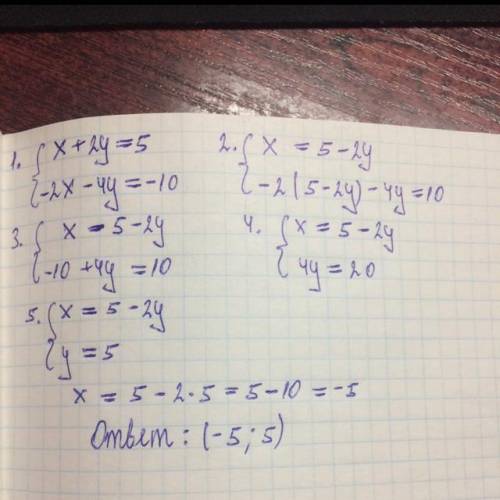 1. { x + 2y = 5
-2x - 4y = -10
2. { x = 5 - 2y
-2(5 - 2y) - 4y = 10
3. { x = 5 - 2y
-10 + 4y = 10
4. { x = 5 - 2y
4y = 20
5. { x = 5 - 2y
y = 5
x = 5 - 2·5 = 5 - 10 = -5
Ответ: (-5; 5)